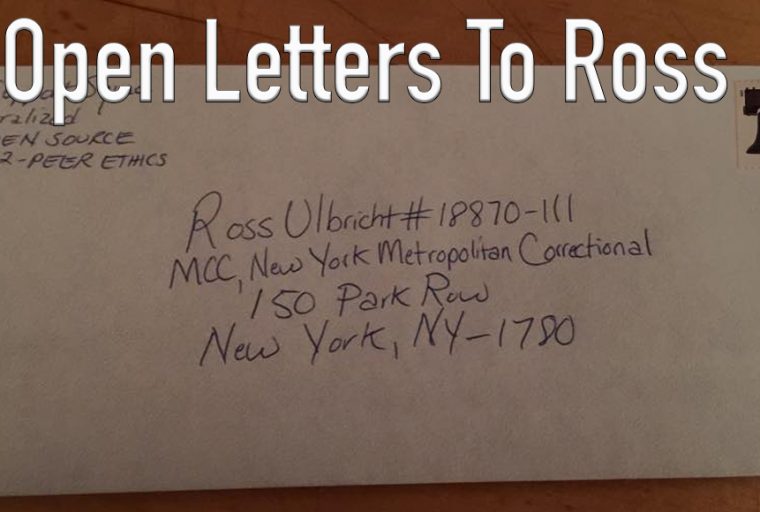 Open Letters To Ross
EN SOURCE
2-PEER ETHICS
Ross Ulbricht #18870-111
MCC, New York Metropolitan Correctional
150 Park Row
New York, NY-1780